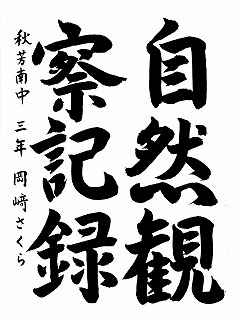 自然観
察記録
秋芳南中 三年 岡﨑さくら